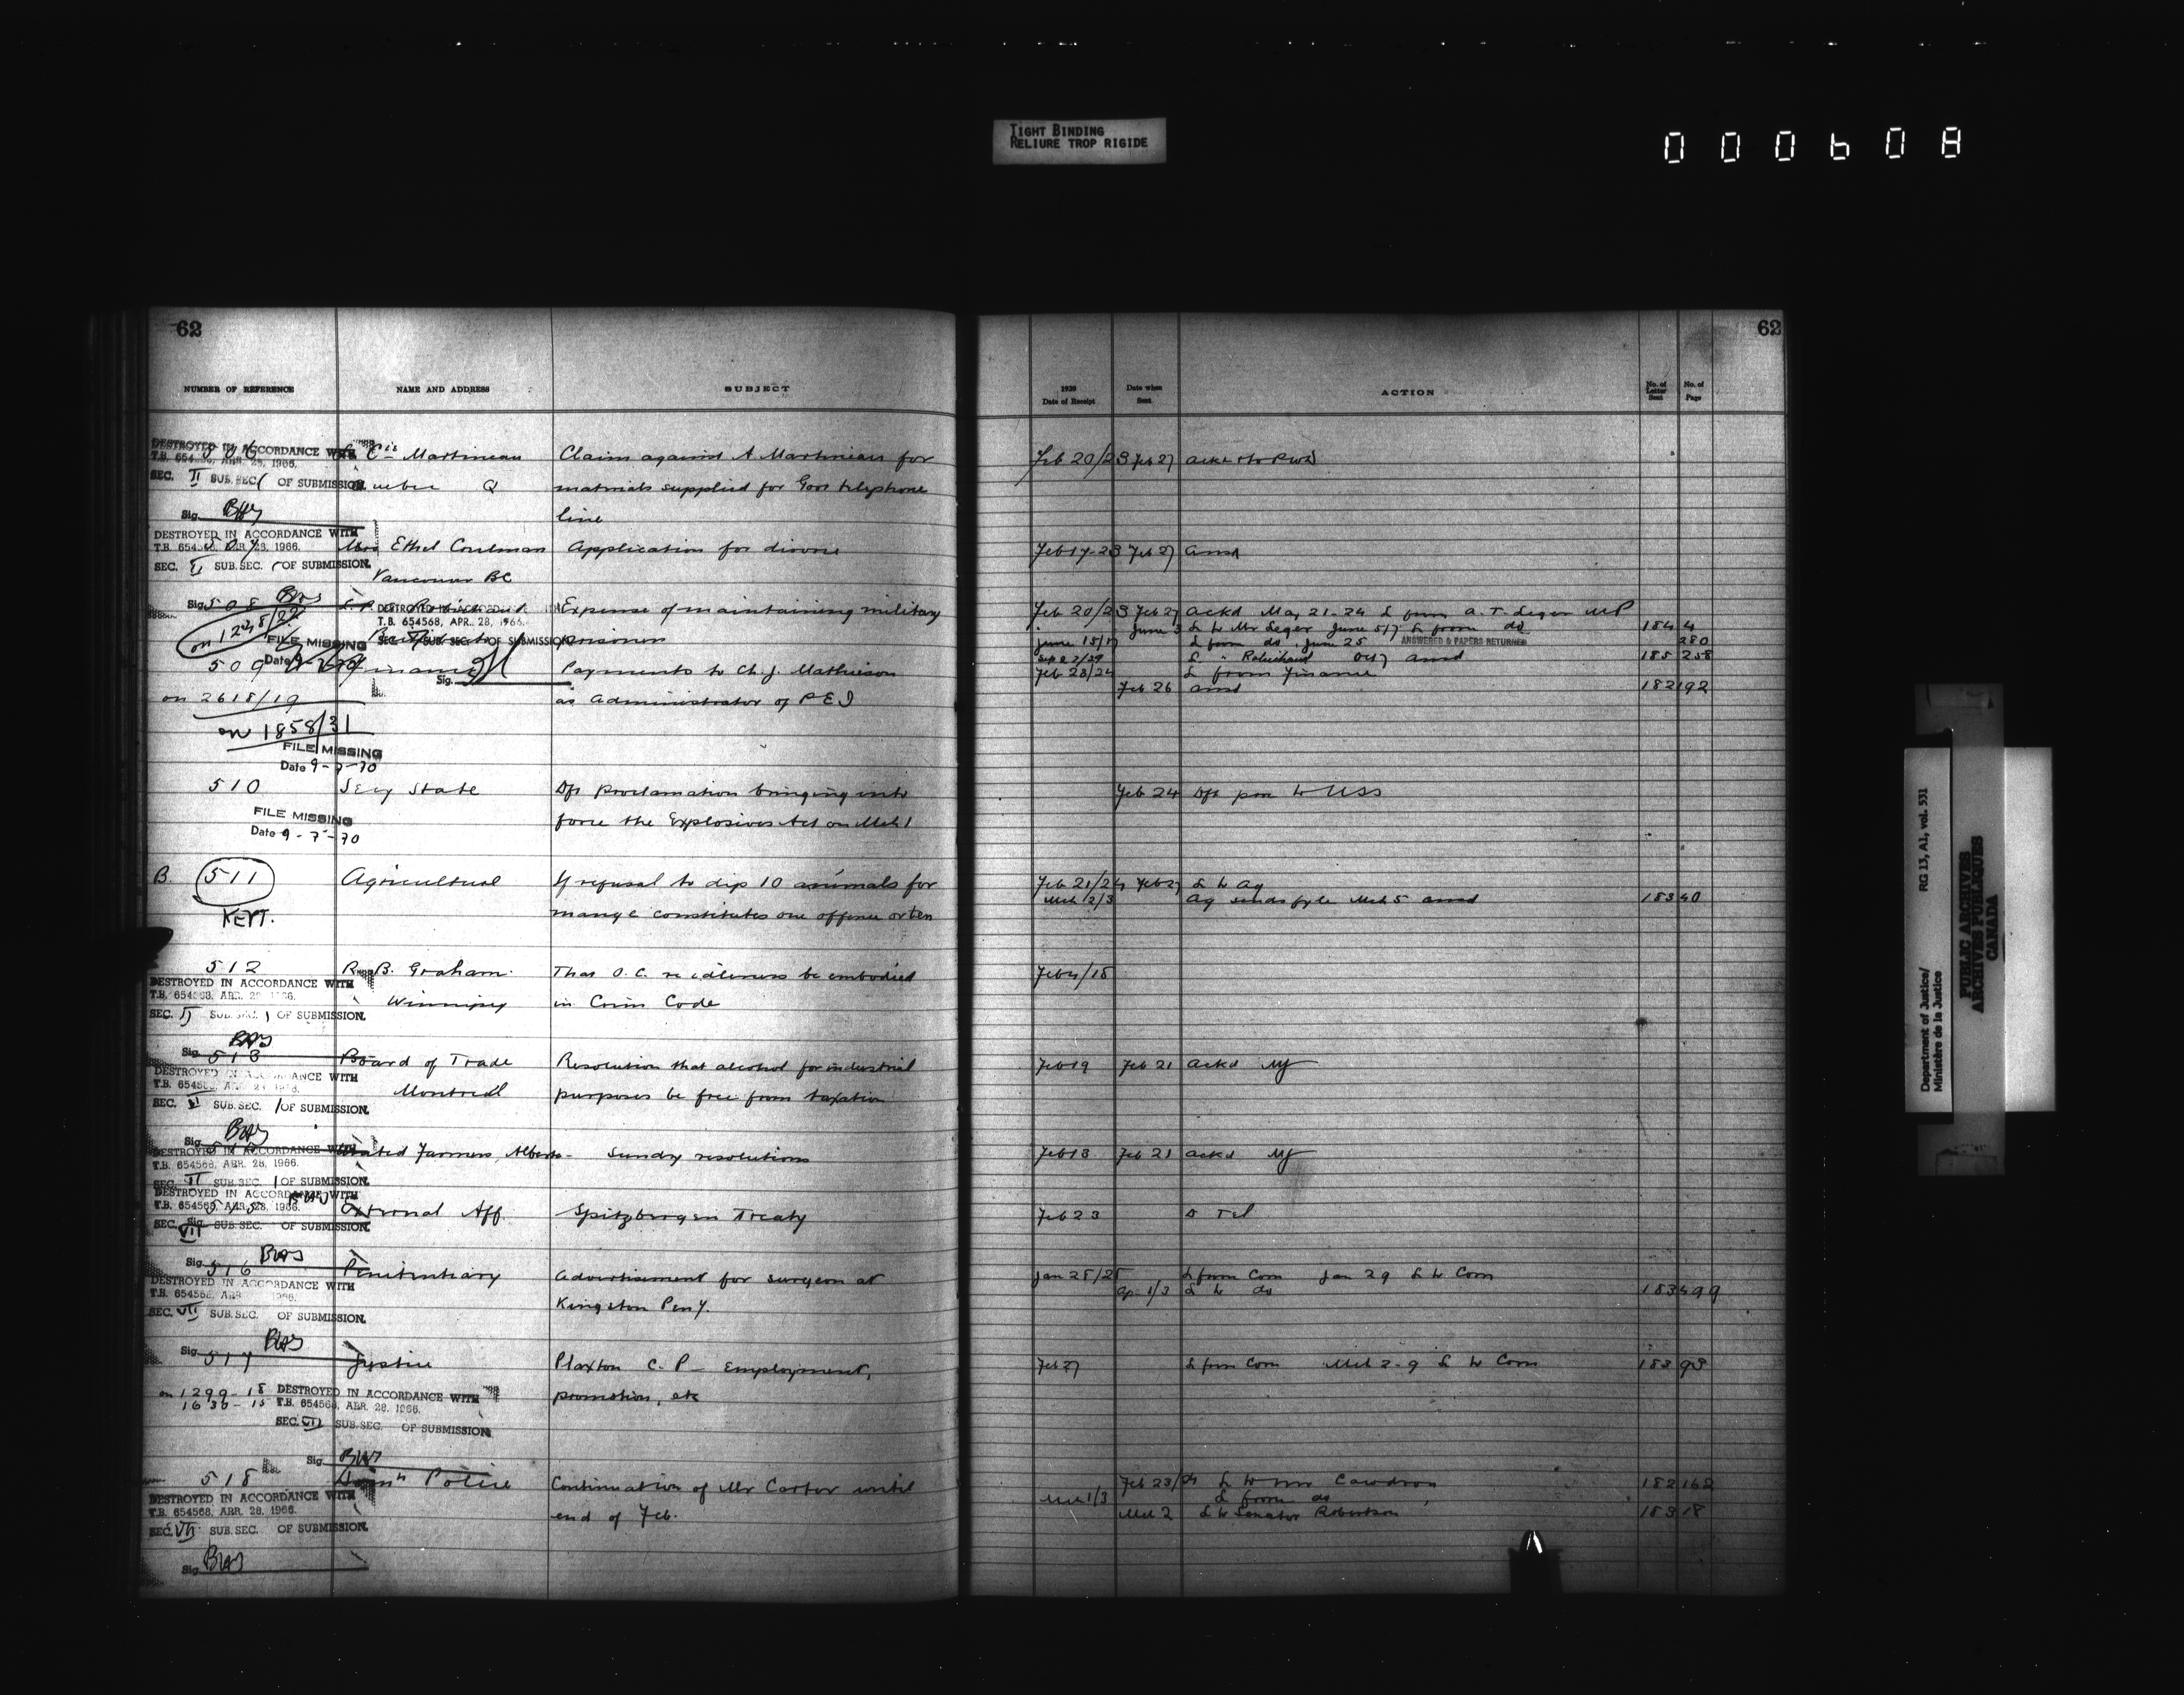 TIGHT BINDING
RELIURE TROP RIGIDE
000608
62
NUMBER OF REFERENCE NAME AND ADDRESS SUBJECT
DESTROYED IN ACCORDANCE WITH
T.B. 654568, APR. 28, 1966.
SEC. II SUB. SEC. OF SUBMISSION.
Sig.
Martineau
Q
Claim against A Martineau for
materials supplied for Govt telephone
line
DESTROYED IN ACCORDANCE WITH
T.B. 654568, APR. 28, 1966.
SEC. SUB. SEC. OF SUBMISSION.
507 Mrs Ethel Coulman Application for divorce
Vancouver BC
Sig.
508 Expense of maintaining military
prisoner
on 1248/22
DESTROYED IN ACCORDANCE WITH
T.B. 654568, APR. 28, 1966.
SEC. SUB. SEC. OF SUBMISSION
FILE MISSING
Date
Sig.
509 Finance Payments to Ch. J. Mathieson
on 2618/19 as Administrator of P E I
on 1858/31
FILE MISSING
Date 9-7-70
510 Secy State Dft Proclamation bringing into
force the Explosives Act on Mch 1
FILE MISSING
Date 9-7-70
B. 511 Agricultural If refusal to dip 10 animals for
KEPT. mange constitutes one offence or ten
512 R. B. Graham. That O.C. re idleness be embodied
Winnipeg in Crim Code
DESTROYED IN ACCORDANCE WITH
T.B. 654568, APR. 28, 1966.
SEC. II SUB. SEC. 1 OF SUBMISSION.
Sig.
513 Board of Trade Resolution that alcohol for industrial
Montreal purposes be free from taxation
DESTROYED IN ACCORDANCE WITH
T.B. 654568, APR. 28, 1966.
SEC. VI SUB. SEC. 1 OF SUBMISSION.
Sig.
United Farmers, Alberta - Sundry resolutions
DESTROYED IN ACCORDANCE WITH
T.B. 654568, APR. 28, 1966.
SEC. VI SUB. SEC. 1 OF SUBMISSION.
DESTROYED IN ACCORDANCE WITH
T.B. 654568, APR. 28, 1966.
515 External Aff. Spitzbergen Treaty
SEC. VII SUB. SEC. OF SUBMISSION.
Sig.
516 Penitentiary Advertisement for surgeon at
Kingston Peny.
DESTROYED IN ACCORDANCE WITH
T.B. 654568, APR. 28, 1966.
SEC. VII SUB. SEC. OF SUBMISSION.
Sig.
517 Justice Plaxton C. P - Employment,
on 1299-18 promotion, etc
1636-15
DESTROYED IN ACCORDANCE WITH
T.B. 654568, APR. 28, 1966.
SEC. VII SUB. SEC. OF SUBMISSION.
Sig.
518 Domn Police Continuation of Mr Carter until
end of Feb.
DESTROYED IN ACCORDANCE WITH
T.B. 654568, APR. 28, 1966.
SEC. VII SUB. SEC. OF SUBMISSION.
Sig.
62
1920
Date of Receipt
Date when
Sent
ACTION
No. of
Letter
Sent
No. of
Page
Feb 20/23 Feb 27
Feb 17-23 Feb 27 ansd
Feb 20/23 Feb 27 ackd May 21-24 L from A. T. Leger MP
June 3 L to Mr Leger June 5/7 L from do 184 4
June 15/17 L from do, June 25 ANSWERED & PAPERS RETURNED 280
L " Robichaud Oct 7 ansd 185 258
Feb 23/24 L from Finance
Feb 26 ansd 182 192
Feb 24 Dft pro to USS
Feb 21/24 Feb 27 L to Ag
Mch 2/3 Ag sends fyle Mch 5 ansd 183 40
Feb 4/18
Feb 19 Feb 21 ackd MJ
Feb 18 Feb 21 ackd MJ
Feb 23 Tel
Jan 28/28 L from Com Jan 29 L to Com
Ap 1/3 L to do 183 499
Feb 27 L from Com Mch 2-9 L to Com 183 93
Feb 23/24 L to Mr Cawdron 182 162
Mch 1/3 L from do
Mch 2 L to Senator Robertson 183 18
Department of Justice/
Ministère de la Justice
RG 13, A1, vol. 531
PUBLIC ARCHIVES
ARCHIVES PUBLIQUES
CANADA